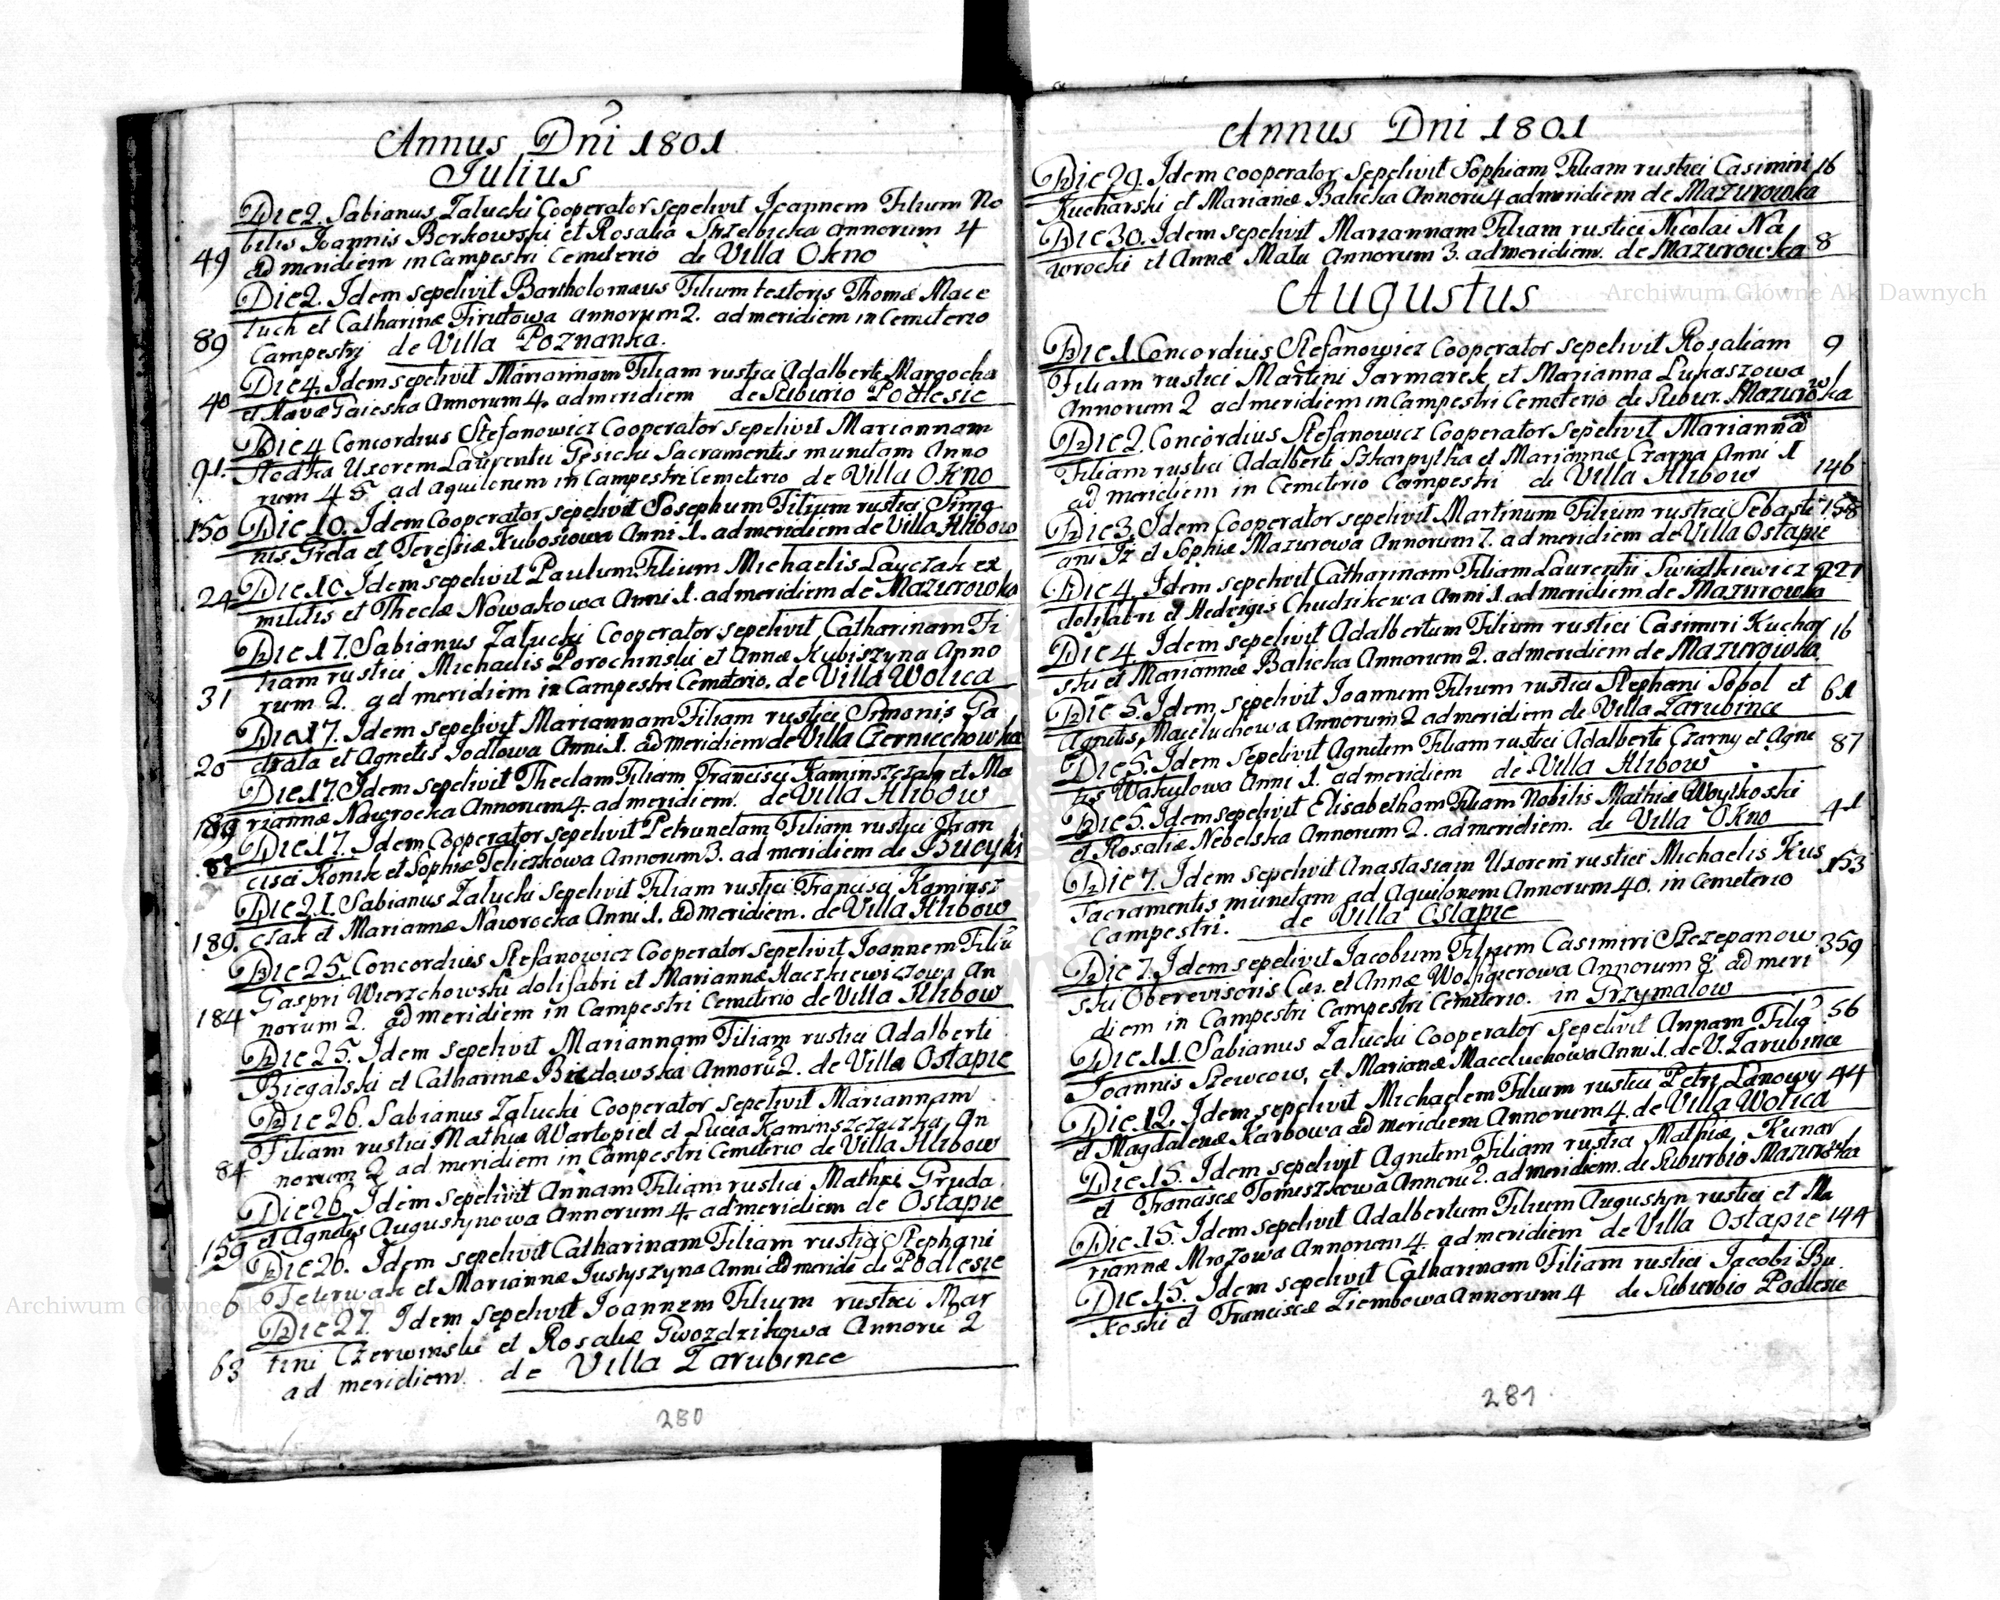 Annus Dni 1801
Julius
Die 2. Sabianus Zalucki Cooperator sepelivit Joannem Filium No
bilis Joannis Borkowski et Rosalia Strzelbicka Annorum 4
49 ad meridiem in Campestri Cemeterio de Villa Okno
Die 2. Idem sepelivit Bartholomæus Filium textoris Thomæ Mace
luch et Catharinæ Firutowa Annorum 2. ad meridiem in Cemeterio
89 Campestry de Villa Poznanka.
Die 4. Idem sepelivit Mariannam Filiam rustici Adalberti Margocha
40 et Annorum 4. ad meridiem de Suburio Podlesie
Die 4 Concordius Stefanowicz Cooperator sepelivit Mariannam
91. Uxorem Laurentii Gesicki Sacramentis munitam Anno
rum 45 ad Aquilonem in Campestri Cemeterio de Villa Okno
150 Die 10. Idem Cooperator sepelivit Josephum Filium rustici Simo
nis Greta et Teressiæ Kubosiowa Anni 1. ad meridiem de Villa Hlibow
Die 10. Idem sepelivit Paulum Filium Michaelis Layczak ex
24 militis et Theclæ Nowakowa Anni 1. ad meridiem de Mazurowka
Die 17. Sabianus Zalucki Cooperator sepelivit Catharinam Fi
liam rustici Michaelis Porochinski et Annæ Kubiszyna Anno
31 rum 2. ad meridiem in Campestri Cemeterio. de Villa Wolica
Die 17. Idem sepelivit Mariannam Filiam rustici Simonis Ga
20 drata et Agnetis Jodlowa Anni 1. ad meridiem de Villa Czerniechowka
Die 17. Idem sepelivit Theclam Filiam Francisci Kaminszczak et Ma
189 riannæ Nawrocka Annorum 4. ad meridiem. de Villa Hlibow
Die 17. Idem Cooperator sepelivit Petrunelam Filiam rustici Fran
82 cisci Konik et Sophiæ Teliczkowa Annorum 3. ad meridiem de Bucyki
Die 21. Sabianus Zalucki sepelivit Filiam rustici Francisci Kaminsz
189. czak et Mariannæ Nawrocka Anni 1. ad meridiem. de Villa Hlibow
Die 25. Concordius Stefanowicz Cooperator sepelivit Joannem Filiū
Gaspri Wierzchowski dolifabri et Mariannæ Haczkiewiczowa An
184 norum 2. ad meridiem in Campestri Cemeterio de Villa Hlibow
Die 25. Idem sepelivit Mariannam Filiam rustici Adalberti
Biegalski et Catharinæ Biedowska Annorū 2. de Villa Ostapie
Die 26. Sabianus Zalucki Cooperator sepelivit Mariannam
Filiam rustici Mathiæ Wartopiel et Lucia Kaminszczaczka An
84 norum 2 ad meridiem in Campestri Cemeterio de Villa Hlibow
Die 26. Idem sepelivit Annam Filiam rustici Mathei Gruda
159 et Agnetis Augustynowa Annorum 4. ad meridiem de Ostapie
Die 26. Idem sepelivit Catharinam Filiam rustici Stephani
6 Teterwak et Mariannæ Justyszyna Anni ad meridie de Podlesie
Die 27. Idem sepelivit Joannem Filium rustici Mar
tini Czerwinski et Rosaliæ Gwozdzikowa Annorū 2
63 ad meridiem. de Villa Zarubince
280
Annus Dni 1801
Die 29. Idem cooperator sepelivit Sophiam Filiam rustici Casimiri 16
Kucharski et Marianæ Balicka Annorū 4 ad meridiem de Mazurowka
Die 30. Idem sepelivit Mariannam Filiam rustici Nicolai Na
wrocki et Annæ Mala Annorum 3. ad meridiem. de Mazurowka 8
Augustus
Die 1. Concordius Stefanowicz Cooperator sepelivit Rosaliam 9
Filiam rustici Martini Jarmarek et Marianna Lukaszowa
Annorum 2 ad meridiem in Campestri Cemeterio de Subur. Mazurowka
Die 2. Concordius Stefanowicz Cooperator sepelivit Marianna
Filiam rustici Adalberti Szkarpytka et Mariannæ Czarna Anni 1
ad meridiem in Cemeterio Campestri de Villa Hlibow 146
Die 3. Idem Cooperator sepelivit Martinum Filium rustici Sebasti 158
ani Jz et Sophiæ Mazurowa Annorum 2. ad meridiem de Villa Ostapie
Die 4 Idem sepelivit Catharinam Filiam Laurentii Swiatkiewicz 221
dolifabri et Hedvigis Chudzikowa Anni 1. ad meridiem de Mazurowka
Die 4 Idem sepelivit Adalbertum Filium rustici Casimiri Kuchar 16
ski et Mariannæ Balicka Annorum 2. ad meridiem de Mazurowka
Die 5. Idem sepelivit Joannem Filium rustici Stephani Sobol et 61
Agnetis Maceluchowa Annorum 2 ad meridiem de Villa Zarubince
Die 5. Idem sepelivit Agnetem Filiam rustici Adalberti Czarny et Agne 87
tis Wakulowa Anni 1. ad meridiem de Villa Hlibow
Die 5. Idem sepelivit Elisabetham Filiam Nobilis Mathiæ Woytkoski 41
et Rosaliæ Nebelska Annorum 2. ad meridiem. de Villa Okno
Die 7. Idem sepelivit Anastasiam Uxorem rustici Michaelis Kus 153
Sacramentis munitam ad Aquilonem Annorum 40. in Cemeterio
Campestri. de Villa Ostapie
Die 7. Idem sepelivit Jacobum Filium Casimiri Szczepanow 359
ski Oberevisoris Cæs. et Annæ Annorum 8 ad meri
diem in Campestri Campestri Cemeterio. in Grzymalow
Die 11. Sabianus Zalucki Cooperator sepelivit Annam Filiā 56
Joannis Szewcow, et Marianæ Maceluchowa Anni 1. de V. Zarubince
Die 12. Idem sepelivit Michaelem Filium rustici Petri Lanowy 44
et Magdalenæ Karbowa ad meridiem Annorum 4. de Villa Wolica
Die 15. Idem sepelivit Agnetem Filiam rustici Mathiæ Kunar
et Franciscæ Tomeszkowa Annorū 2. ad meridiem. de Suburbio Mazurowka
Die 15. Idem sepelivit Adalbertum Filium Augustyn rustici et Ma
riannæ Mrozowa Annorum 4. ad meridiem de Villa Ostapie 144
Die 15. Idem sepelivit Catharinam Filiam rustici Jacobi Bu
koski et Franciscæ Ziembowa Annorum 4 de Suburbio Podlesie
281
Archiwum Główne Akt Dawnych
Archiwum Główne Akt Dawnych